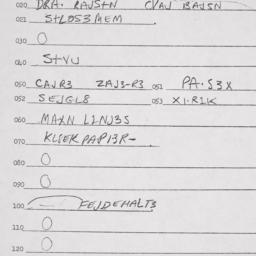 020 DRA. RAJS+N CVAJ BAJSN
021 S+LOS3MEM .
030 O
040 S+VU
050 CAJR3 ZAJ3-R3 051 PA.S3X
052 SEJGL8 053 XI.R1K
060 MAXN LINJ3S
070 KLIEKPAPI3R-
080 O
090 O
100 FEJDEHALT3
110 O
120 O